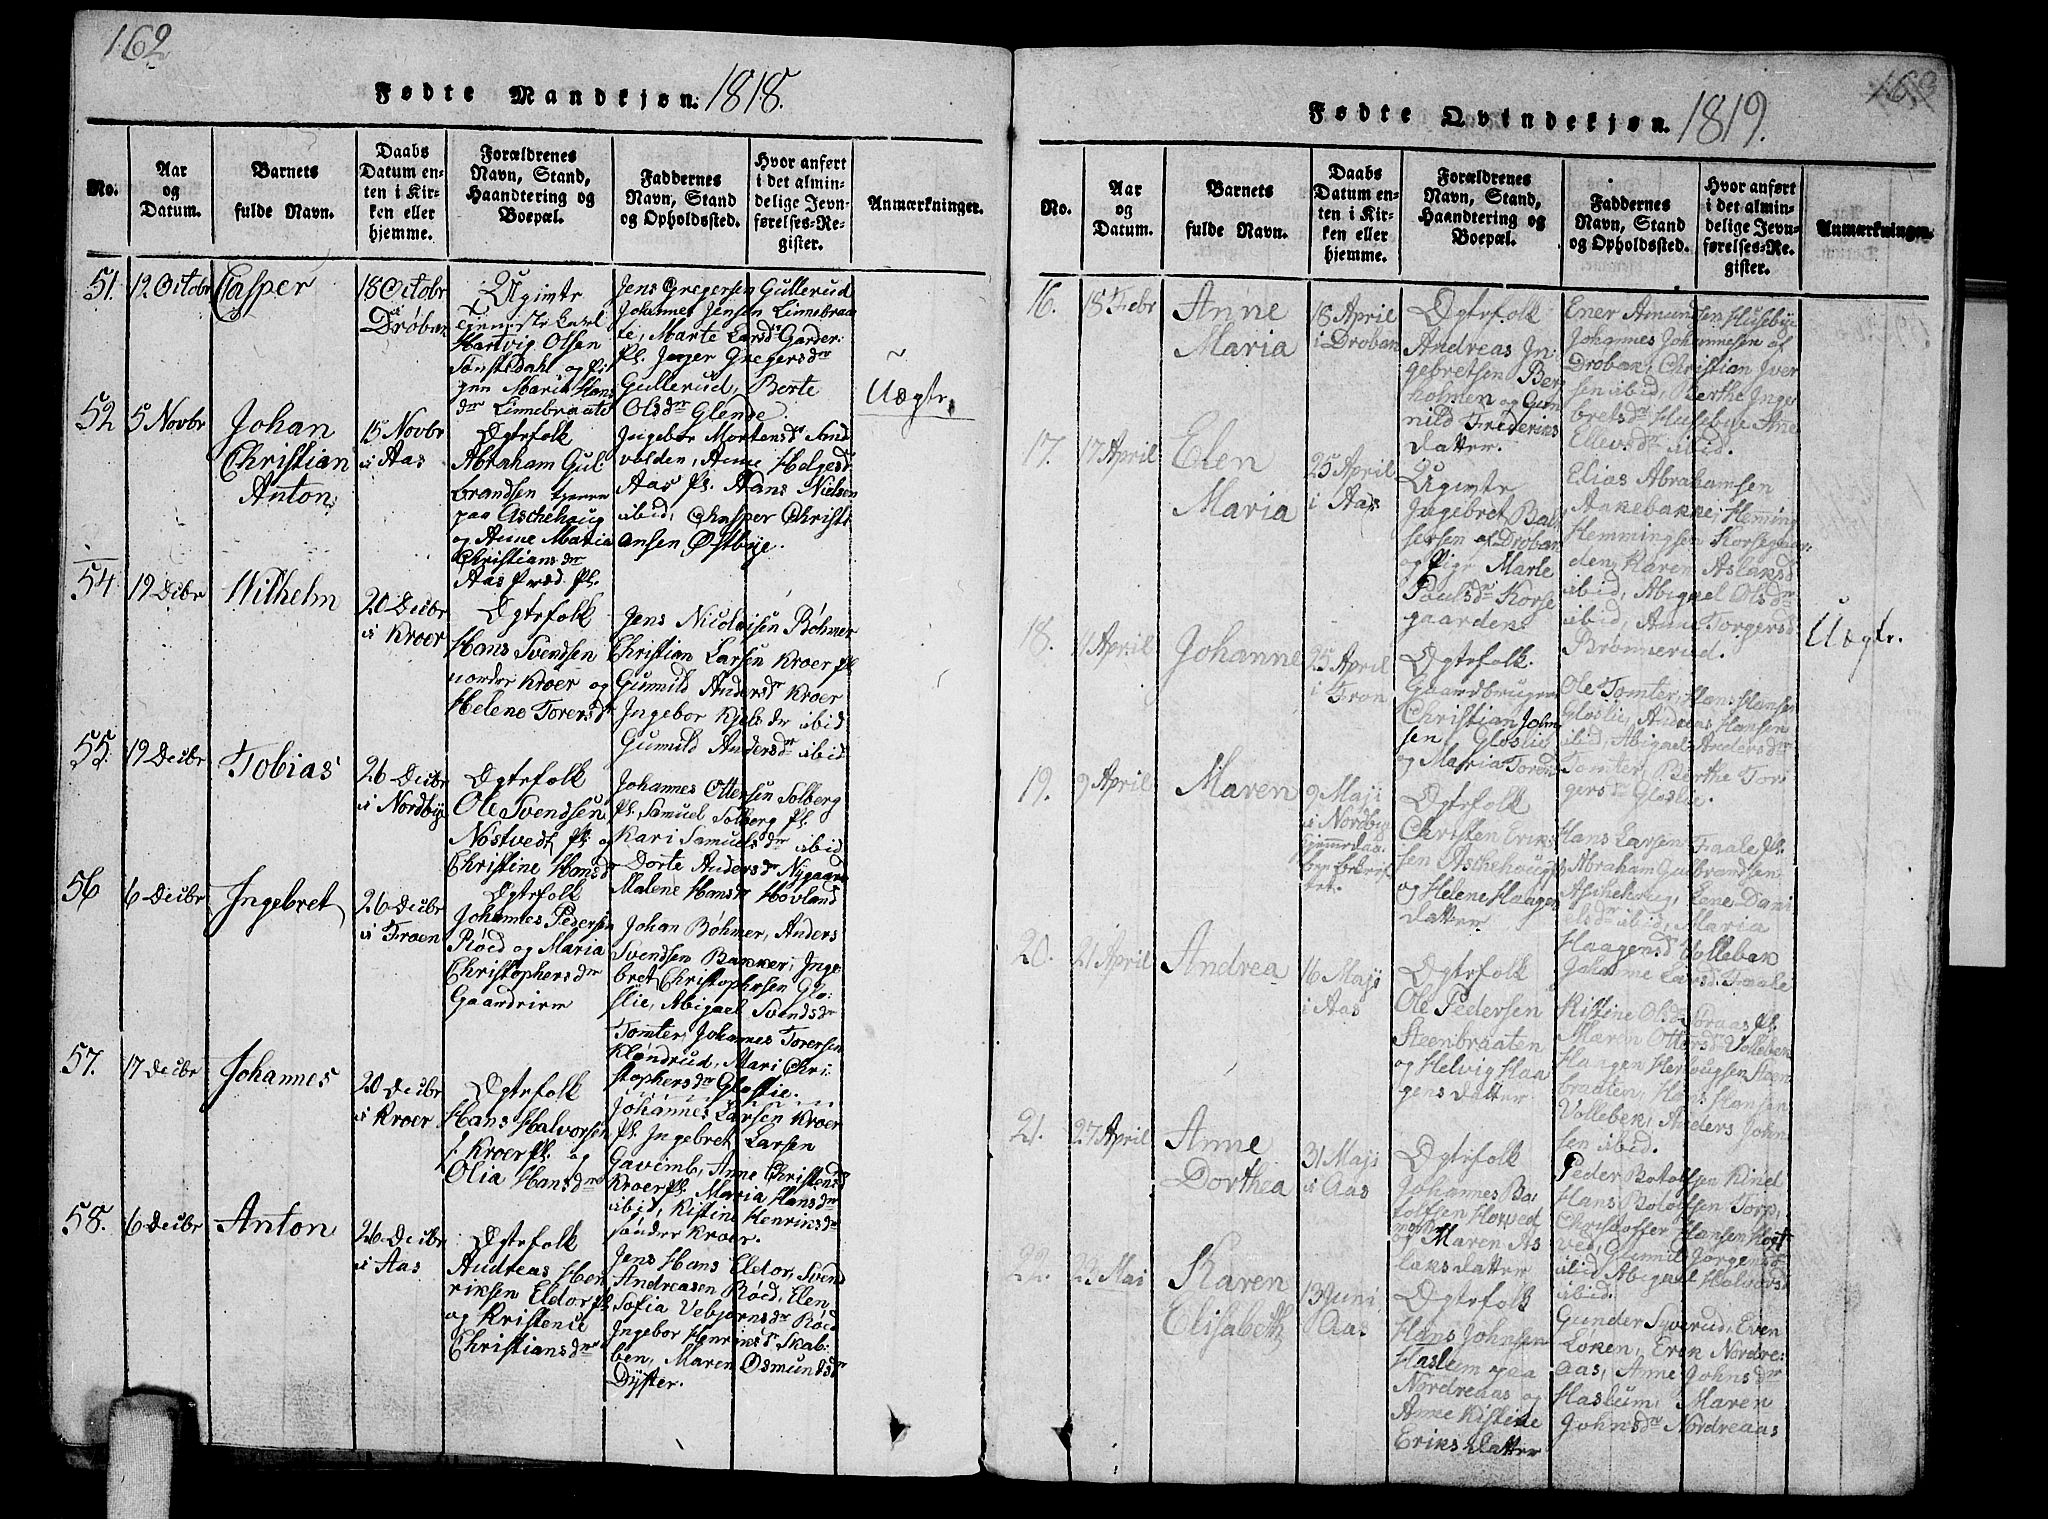 162
Fødte Mandkjøn. 1818.
No.
Aar og Datum.
Barnets fulde Navn.
Daabs Datum enten i Kirken eller hjemme.
Forældrenes Navn, Stand, Haandtering og Boepæl.
Faddernes Navn, Stand og Opholdssted.
Hvor anført i det almindelige Jevnførelses-Register.
Anmærkninger.
51.
12 Octobr
Casper
18 Octobr
i Drøbak
Ugivte
Hartvig Olsen
og Pi-
gen Marie Hans
dr Linnebraate
Jens Gregersen Gullerud
Johannes Jensen Linnebraa
te, Marte Larsdr Garder-
Pl. Inger Gregersdr
Gullerud, Berte
Olsdr Glende
Uægte.
52
5 Novbr
Johan
Christian
Anton.
15 Novbr
i Aas
Ægtefolk
Abraham Gul-
brandsen
paa Aschehoug
og Anne Maria
Christiansdr
Aas Præd. Pl.
Ingebor Mortensdr Sand
volden, Anne Helgesd
Aas Pl. Hans Nielsen
ibid, Casper Christi
ansen Østbye.
54
12 Decbr
Wilhelm
20 Decbr
i Kroer
Ægtefolk
Hans Svendsen
nordre Kroer og
Helene Torersdr
Jens Nicolaisen Bøhmer
Christian Larsen Kroer Pl
Gunnild Andersdr Kroer
Ingebor Kjelsdr ibid
Gunnild Andersdr ibid
55.
19 Decbr
Tobias
26 Decbr
i Nordbye
Ægtefolk
Ole Svendsen
Nøstvedt Pl. og
Christine Hansd
Johannes Ottersen Solberg
Pl. Samuel Solberg Pl.
Kari Samuelsdr ibid
Dorte Andersdr Nygaard
Malene Hansdr Hovland
56
6 Decbr
Ingebret
26 Decbr
i Froen
Ægtefolk
Johannes Pedersen
Røed og Maria
Christophersdr
Johan Bøhmer, Anders
Svendsen Bakker, Inge-
bret Christophersen Glo-
slie, Abigael Svendsdr
Tomter, Johannes Torersen
Kløndrud, Mari Chri-
stophersdr Gloslie.
57.
17 Decbr
Johannes
20 Decbr
i Kroer
Ægtefolk
Hans Halvorsen
Kroer Pl. og
Olia Hansdr
Johannes Larsen Kroer
Pl. Ingebret Larsen
Anne Christensd
Kroer Pl. Maria Hansdr
ibid, Kistine Henriksdr
søndre Kroer.
58.
6 Decbr
Anton
26 Decbr
i Aas
Ægtefolk
Andreas Hen
riksen Eldor Pl
og Kristence
Christiansdr
Jens Hans Eldor, Svend
Andreasen Røed, Elen
Sofia Vebjørnsdr Røed
Ingebor Henriksd Skab-
ben, Maren Osmundsdr
Dyster.
163
Fødte Qvindekjøn. 1819.
No.
Aar og Datum.
Barnets fulde Navn.
Daabs Datum enten i Kirken eller hjemme.
Forældrenes Navn, Stand, Haandtering og Boepæl.
Faddernes Navn, Stand og Opholdssted.
Hvor anført i det almindelige Jevnførelses-Register.
Anmærkninger.
16.
18 Febr
Anne
Maria
18 April
i Drøbak
Ægtefolk
Andreas In-
gebretsen Berg
holmen og Gun
nild Frederiks
datter.
Ener Amundsen Husebye
Johannes Johannesen af
Drøbak, Christian Iver
sen ibid, Berthe Inge-
bretsdr Husebye Ane
Ellevsdr ibid.
17.
17 April
Elen
Maria
25 April
i Aas
Ugivte
Ingebret Bal-
sersen af Drøbak
og Pige Marte
Poulsdr Korse
gaarden.
Elias Abrahamsen
Aakebakke, Hemming
Hemmingsen Korsegaar-
den, Karen Aslaksd
ibid, Abigael Olsdr
ibid, Anne Torgersd
Brønnerud.
Uægte.
18.
11 April
Johanne
25 April
i Fron
Ægtefolk.
Gaardbruger
Christian John
sen Gloslie
og Maria Torens
Ole Tomter, Hans Hansen
Gloslie, Andreas Hansen
ibid, Abigael Andersdr
Tomter, Berthe Tor
gersdr Gloslie.
19.
9 April
Maren
9 Maji
i Nordby
Ægtefolk
Christen Erik-
sen Aschehoug
og Helene Haagens
datter
Hans Larsen Faale Pl.
Abraham Gulbrandsen
Aschehoug, Lene Dani
elsdr ibid, Maria
Haagensd Vollebek
Johanne Larsd. Faale
20.
21 April
Andrea
16 Maji
i Aas
Ægtefolk
Ole Pedersen
Steenbraaten
og Helvig Haa
gens datter.
Kistine Olsd Aas Pl.
Maren Ottersd Vollebek
Haagen Hervugsen Steen
braaten, Hans Hansen
Vollebek, Anders John
sen ibid.
21.
27 April
Anne
Dorthea
31 Maji
i Aas
Ægtefolk
Johannes Bo-
tolfsen Horved
og Maren As
laks datter
Peder Botolfsen Kind
Hans Botolfsen Torp,
Christoffer Hansen Hogt
ved, Gunnil Jørgensdr
ibid Abigael Halvorsd
ibid.
22.
23 Mai
Karen
Elisabeth
13 Juni
Aas
Ægtefolk
Hans Johnsen
Haslum paa
Nordreaas og
Anne Kistine
Eriks datter
Gunder Syverud, Even
Løken, Erik Nordre-
aas, Anne Johnsdr
Haslum, Maren
Johnsdr Nordreaas